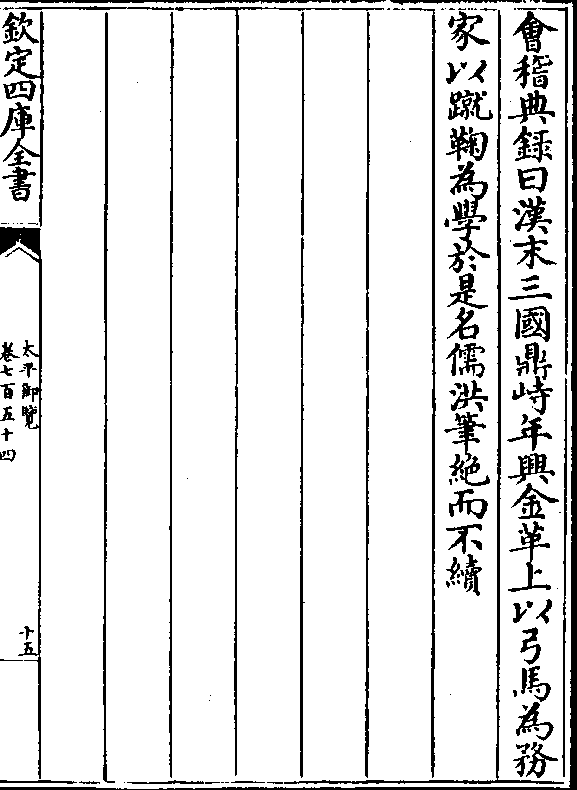 會稽典錄曰漢末三國鼎峙年興金革上以弓馬為務
家以蹴鞠為學於是名儒洪筆絶而不續
欽定四庫全書
太平御覽
卷七百五十四
十五